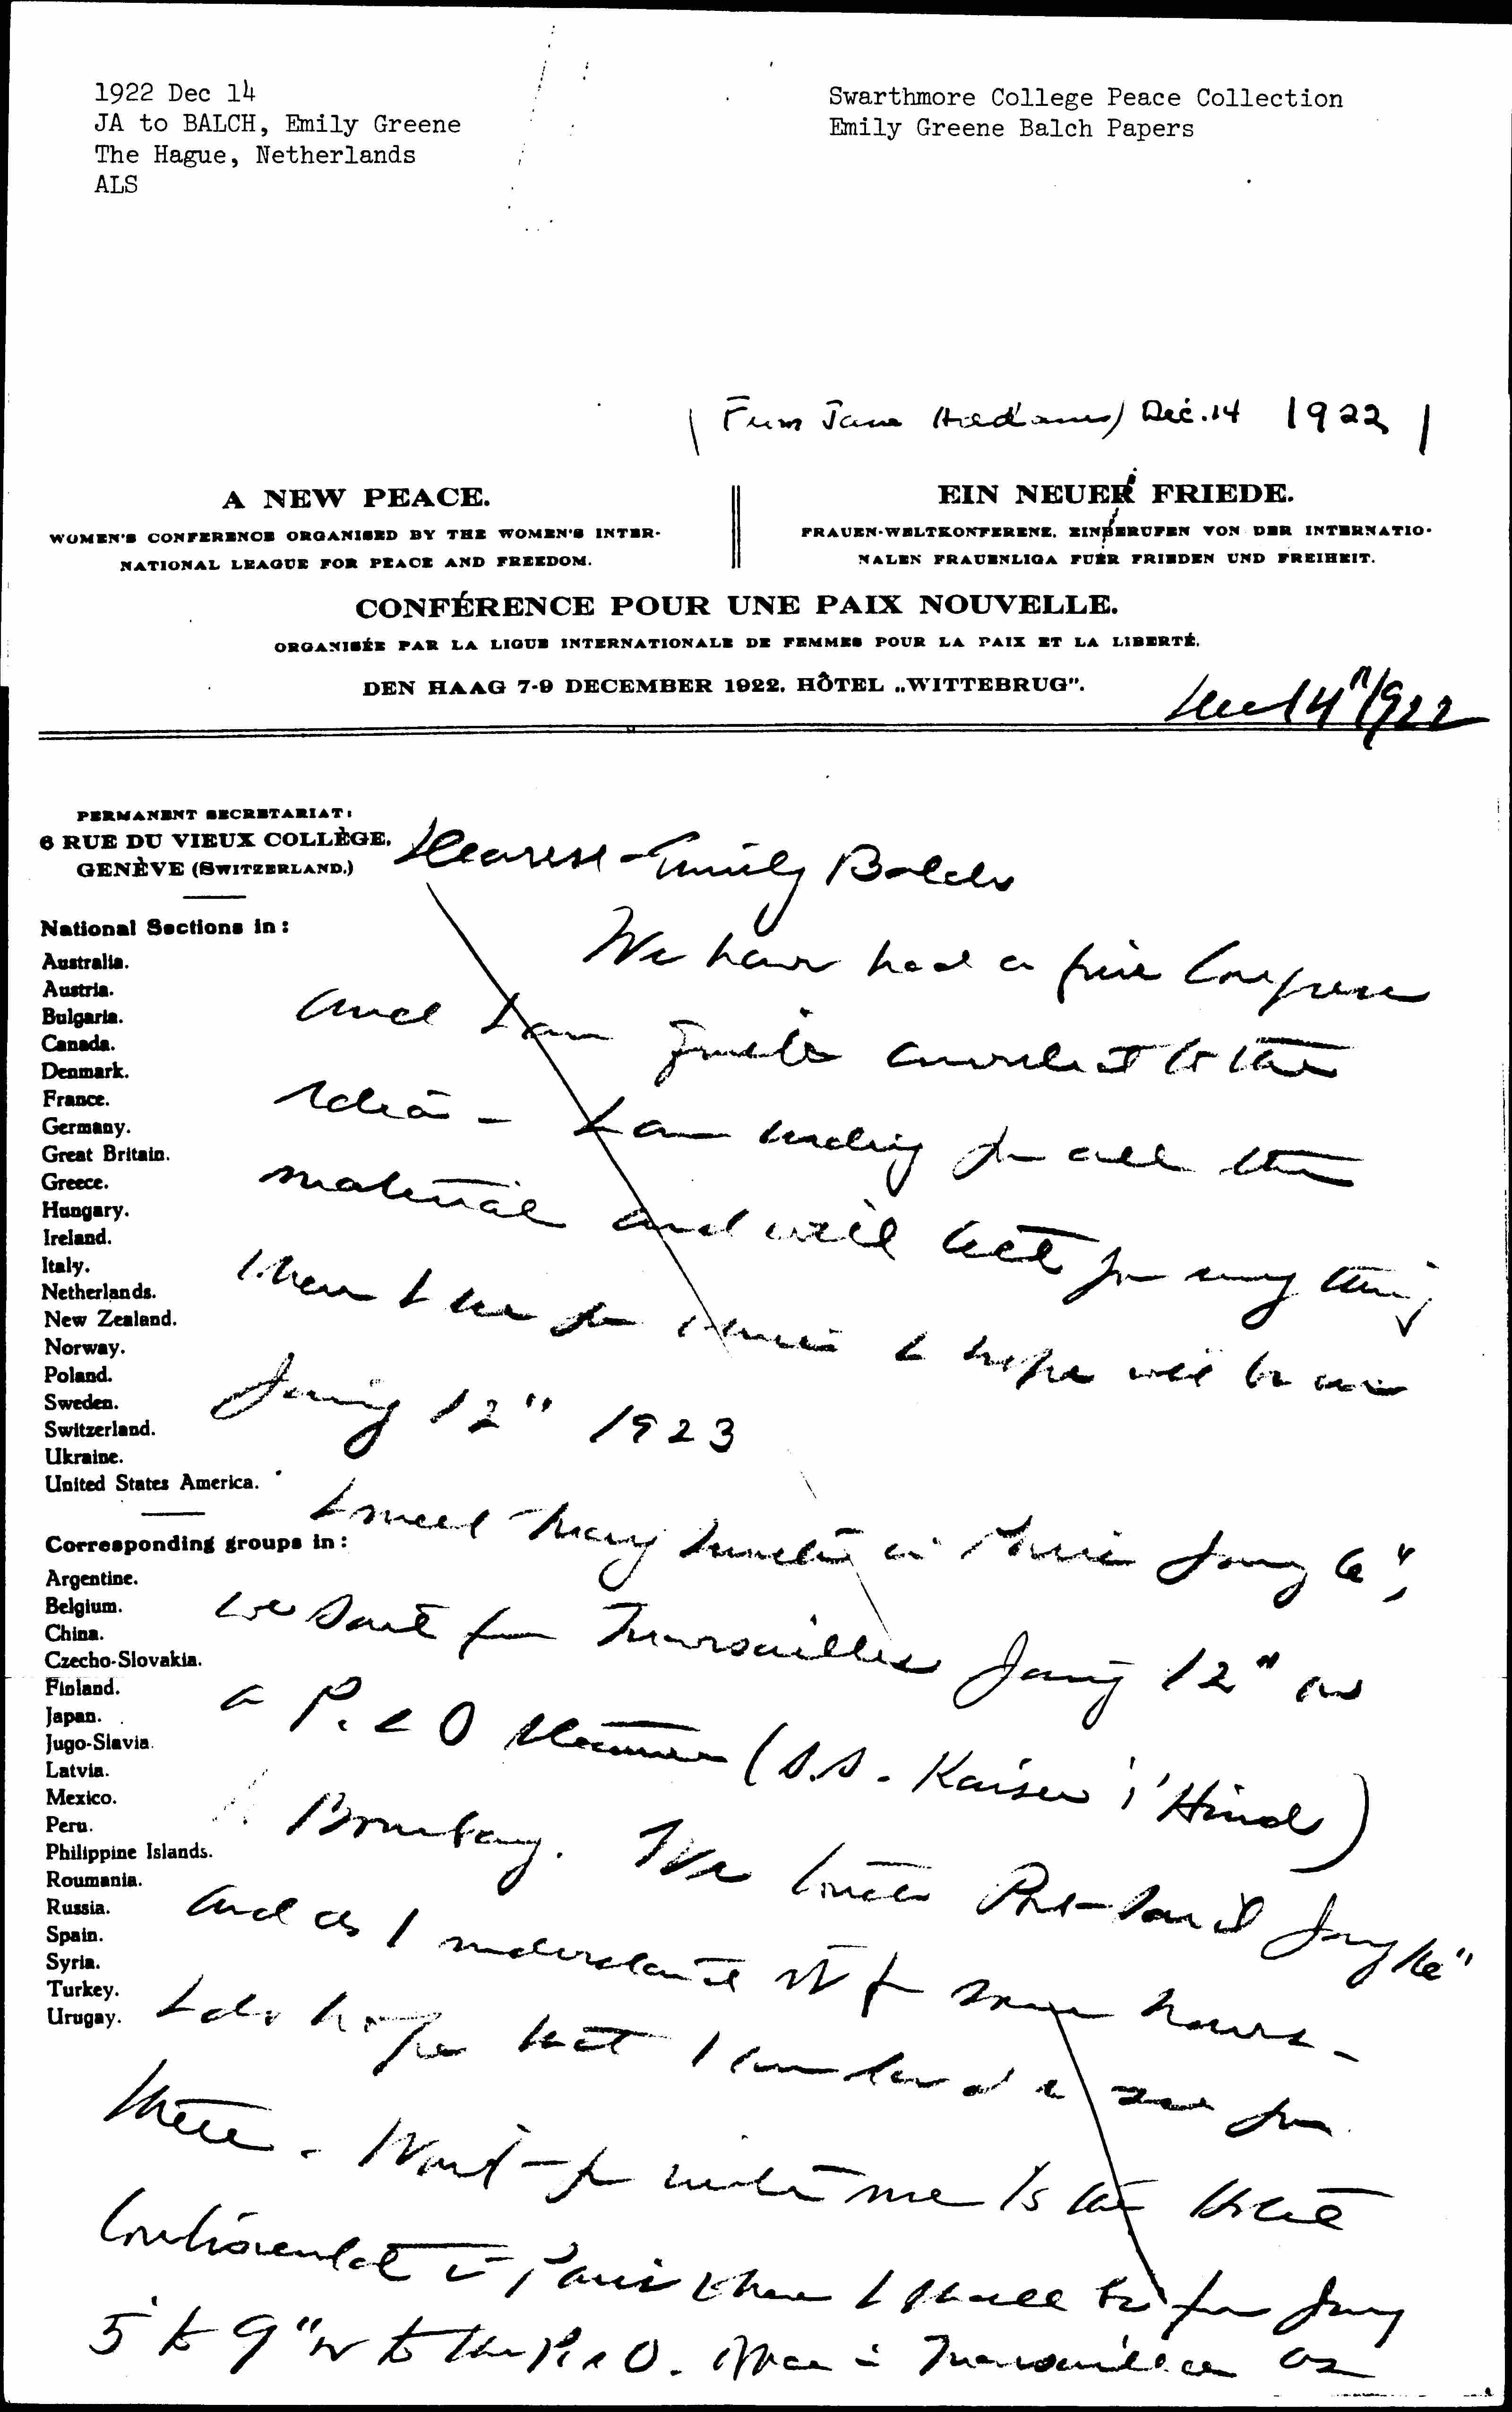 1922 Dec 14
JA to BALCH, Emily Greene
The Hague, Netherlands
ALS
Swarthmore College Peace Collection
Emily Greene Balch Papers
(From Jane Addams) Dec. 14 1922
A NEW PEACE.
WOMEN'S CONFERENCE ORGANISED BY THE WOMEN'S INTER-
NATIONAL LEAGUE FOR PEACE AND FREEDOM.
EIN NEUER FRIEDE.
FRAUEN-WELTKONFERENZ, EINBERUFEN VON DER INTERNATIO-
NALEN FRAUENLIGA FUER FRIEDEN UND FREIHEIT.
CONFÉRENCE POUR UNE PAIX NOUVELLE.
ORGANISÉE PAR LA LIGUE INTERNATIONALE DE FEMMES POUR LA PAIX ET LA LIBERTÉ.
DEN HAAG 7-9 DECEMBER 1922. HÔTEL „WITTEBRUG".
Dec 14" 1922
PERMANENT SECRETARIAT:
6 RUE DU VIEUX COLLÈGE.
GENÈVE (SWITZERLAND.)
National Sections in:
Australia.
Austria.
Bulgaria.
Canada.
Denmark.
France.
Germany.
Great Britain.
Greece.
Hungary.
Ireland.
Italy.
Netherlands.
New Zealand.
Norway.
Poland.
Sweden.
Switzerland.
Ukraine.
United States America.
Corresponding groups in:
Argentine.
Belgium.
China.
Czecho-Slovakia.
Finland.
Japan.
Jugo-Slavia.
Latvia.
Mexico.
Peru.
Philippine Islands.
Roumania.
Russia.
Spain.
Syria.
Turkey.
Urugay.
Dearest Emily Balch
We have had a fine Congress
and I am quite converted to the
idea - I am sending for all the
material and will tell you every thing
when I see you which I hope will be on
Jan'y 12" 1923
I meet Mary Smith in Paris Jan'y 6",
we sail from Marseilles Jan'y 12" on
a P. & O steamer (S.S. Kaiser i' Hind)
to Bombay. We touch Port-Said Jan'y 16"
and as I understand it for some hours -
I do hope that I can land & see you
there. Won't you write me to the Hotel
Continental in Paris where I shall be from Jan'y
5 to 9" or to the P & O. office in Marseilles as